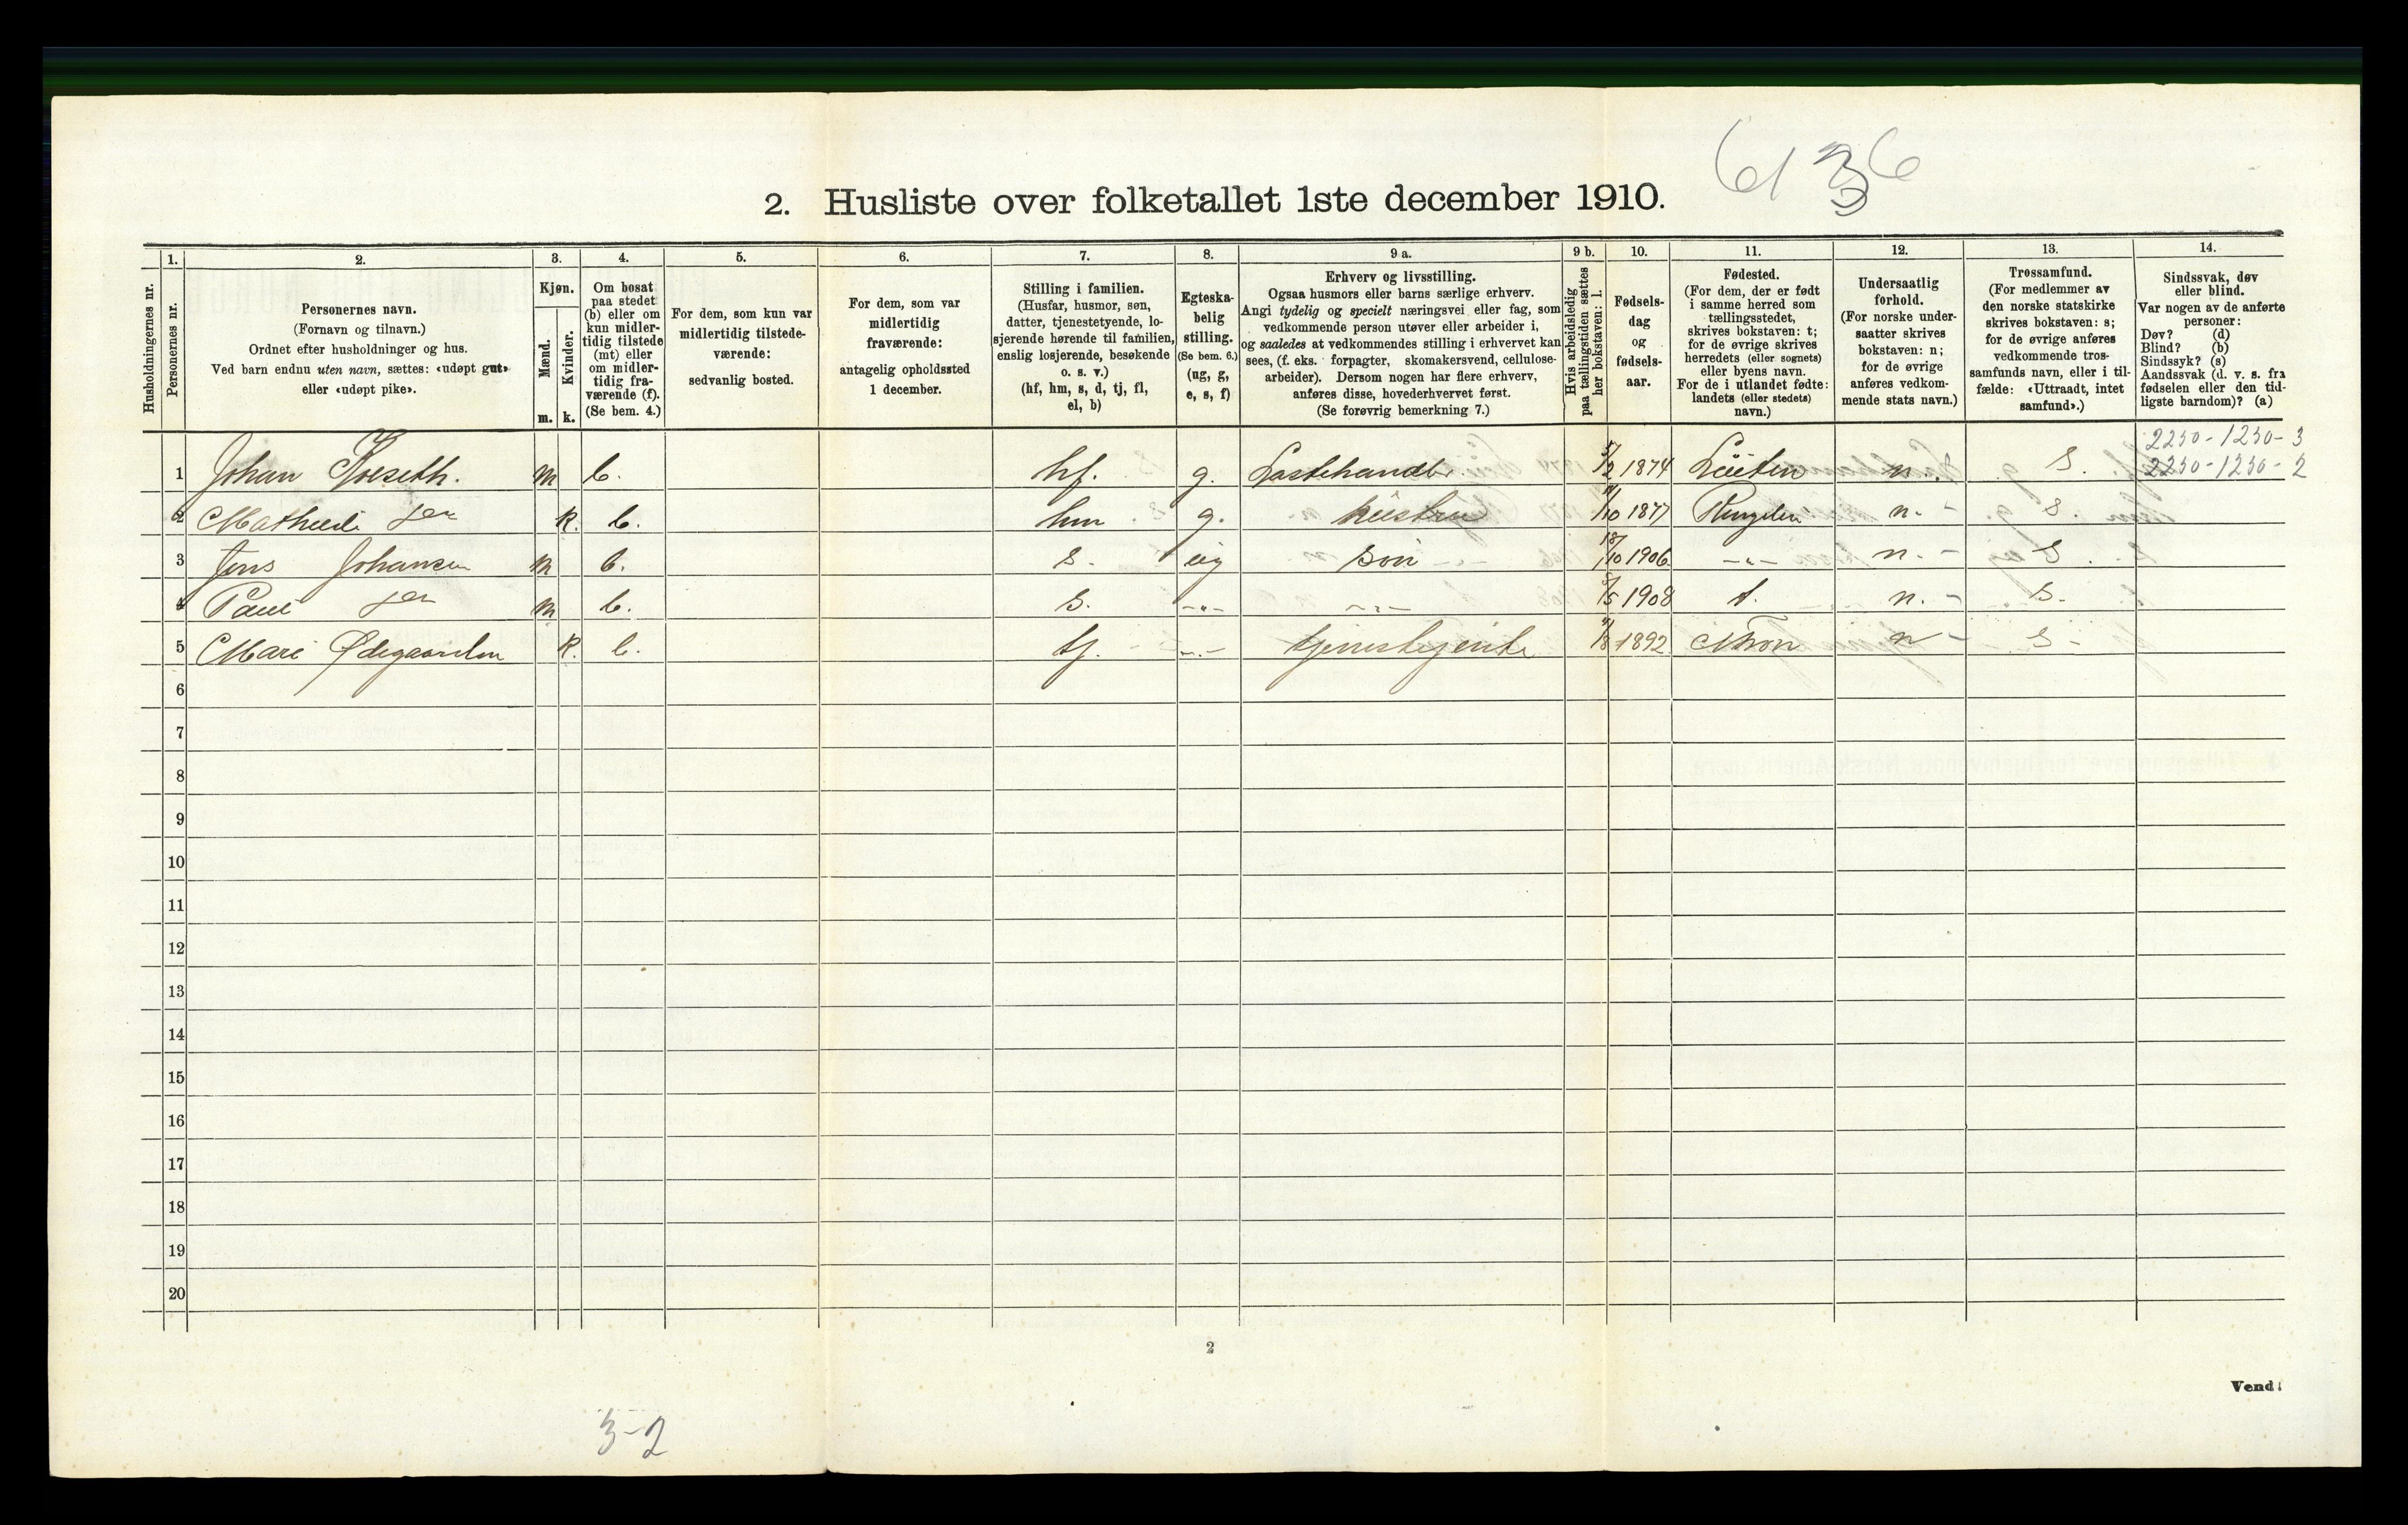 6136
2. Husliste over folketallet 1ste december 1910.
Husholdningernes nr.
1. Personernes nr.
2. Personernes navn. (Fornavn og tilnavn.) Ordnet efter husholdninger og hus. Ved barn endnu uten navn, sættes: «udøpt gut» eller «udøpt pike».
3. Kjøn. Mænd. m. Kvinder. k.
4. Om bosat paa stedet (b) eller om kun midlertidig tilstede (mt) eller om midlertidig fraværende (f). (Se bem. 4.)
5. For dem, som kun var midlertidig tilstedeværende: sedvanlig bosted.
6. For dem, som var midlertidig fraværende: antagelig opholdssted 1 december.
7. Stilling i familien. (Husfar, husmor, søn, datter, tjenestetyende, losjerende hørende til familien, enslig losjerende, besøkende o. s. v.) (hf, hm, s, d, tj, fl, el, b)
8. Egteskabelig stilling. (Se bem. 6.) (ug, g, e, s, f)
9 a. Erhverv og livsstilling. Ogsaa husmors eller barns særlige erhverv. Angi tydelig og specielt næringsvei eller fag, som vedkommende person utøver eller arbeider i, og saaledes at vedkommendes stilling i erhvervet kan sees, (f. eks. forpagter, skomakersvend, cellulosearbeider). Dersom nogen har flere erhverv, anføres disse, hovederhvervet først. (Se forøvrig bemerkning 7.)
9 b. Hvis arbeidsledig paa tællingstiden sættes her bokstaven: l.
10. Fødselsdag og fødselsaar.
11. Fødested. (For dem, der er født i samme herred som tællingsstedet, skrives bokstaven: t; for de øvrige skrives herredets (eller sognets) eller byens navn. For de i utlandet fødte: landets (eller stedets) navn.)
12. Undersaatlig forhold. (For norske undersaatter skrives bokstaven: n; for de øvrige anføres vedkommende stats navn.)
13. Trossamfund. (For medlemmer av den norske statskirke skrives bokstaven: s; for de øvrige anføres vedkommende trossamfunds navn, eller i tilfælde: «Uttraadt, intet samfund».)
14. Sindssvak, døv eller blind. Var nogen av de anførte personer: Døv? (d) Blind? (b) Sindssyk? (s) Aandssvak (d. v. s. fra fødselen eller den tidligste barndom)? (a)
2250-1230-3
1 Johan m b. hf. g. 5/2 1874 Løiten n. S. 2250-1230-2
2 k. b. hm g. hustru 10 1877 n. - S.
3 Jens Johansen m b. s. ug søn 18/10 1906 -"- n. - S
4 Paul m b. s. -"- -"- 5 1908 t. n. - S.
5 Mari Ødegaarden k. b. tj. -"- tjenestejente 8 1892 n - S -
6
7
8
9
10
11
12
13
14
15
16
17
18
19
20
2
Vend!
3-2